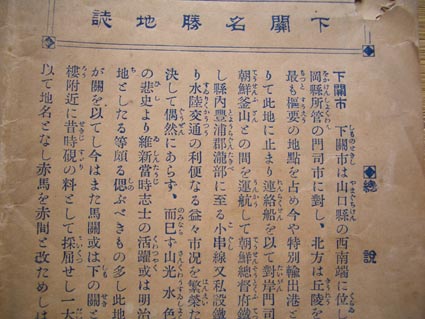 下關名勝地誌
總說
下關市　下關市は山口縣の西南端に位し
岡縣所管の門司市に對し、北方は丘陵を
最も樞要の地點を占め今や特別輸出港と
りて此地に止まり連絡船を以て對岸門司
朝鮮釜山との間を運航して朝鮮總督府鐵
し縣內豐浦郡瀧部に至る小串線又私設鐵
り水陸交通の利便なる益々市況を繁榮な
決して偶然にあらず、而巳す山光水色
の悲史より維新當時志士の活躍或は明治
地としたる等頗る偲ぶべきもの多し此地
が關を以てし今はまた馬關或は下の關と
樓附近に昔時硯の料として採掘せし一大
以て地名となし赤馬を赤間と改ためしは